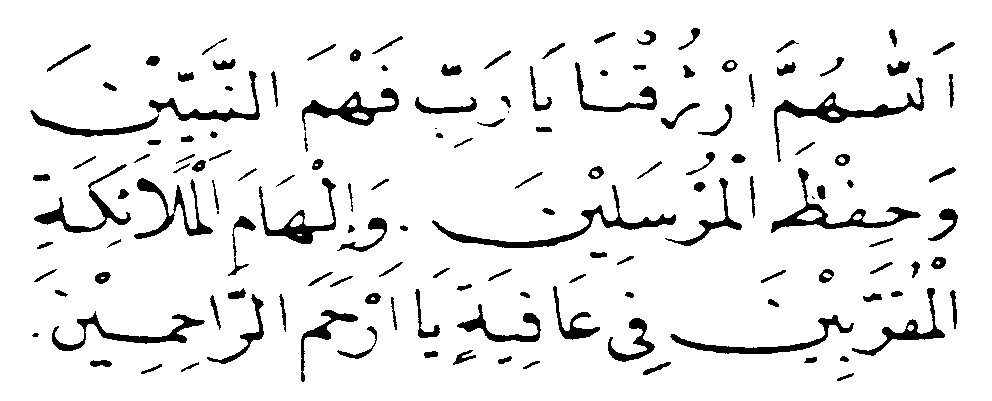 اَللّٰهُمَّ ارْزُقْنَا يَا رَبِّ فَهْمَ النَّبِيِّيْنَ
وَحِفْظَ الْمُرْسَلِيْنَ . وَإِلْهَامَ الْمَلَائِكَةِ
الْمُقَرَّبِيْنَ فِي عَافِيَةٍ يَا اَرْحَمَ الرَّاحِمِيْنَ .